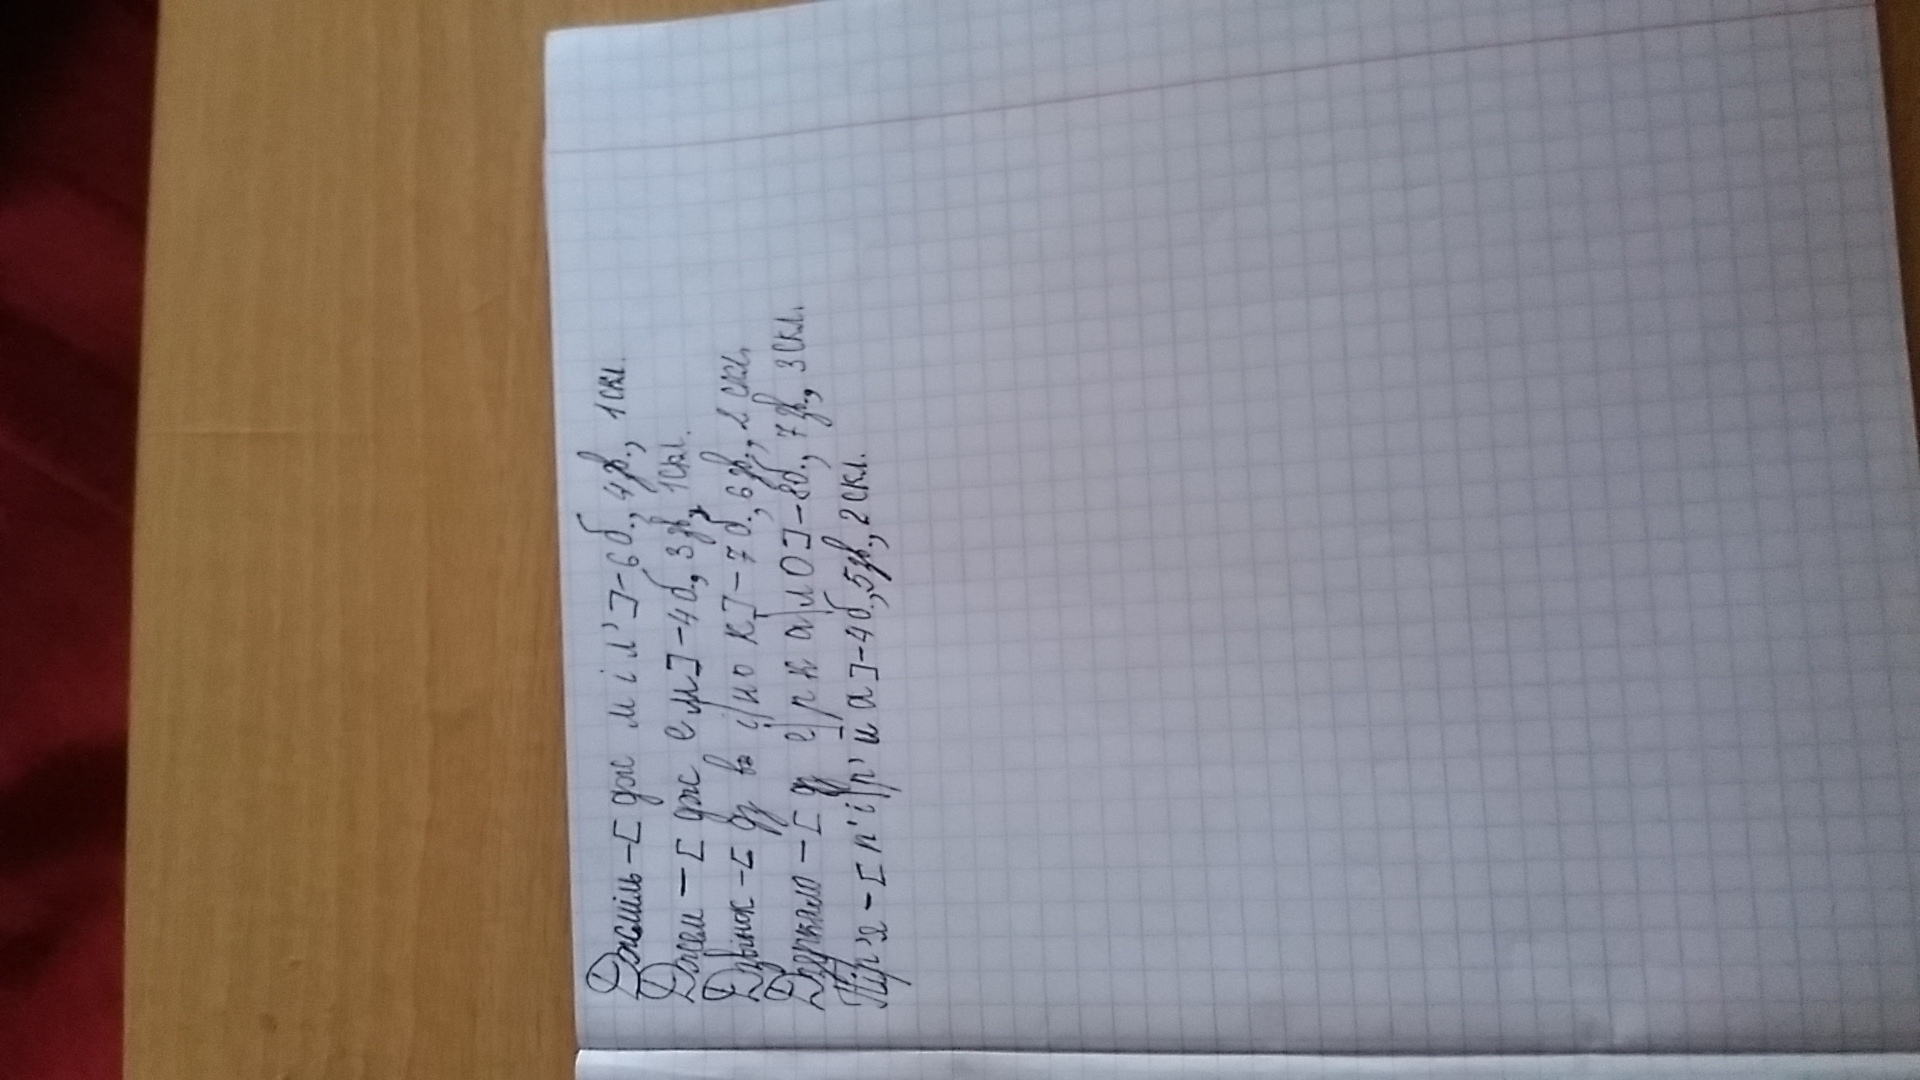 Джміль-[ дж м і л']-6б., 4зв., 1скл.
Джем-[ дж е м]-4б, 3зв, 1скл.
Дзвінок-[ дз в і/но к]-7б., 6зв., 2 скл.
Дзеркало-[ дз е/рк а/ло]-8б., 7зв., 3скл.
Пір'я-[п'і/р' й а]-4б., 5зв., 2скл.